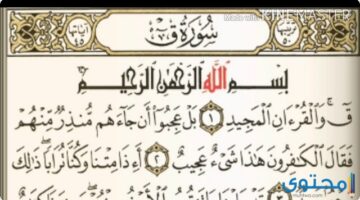 Made With
KINEMASTER
ترتيبها
٥٠
سورة ق
آياتها
٤٥
بِسْمِ ٱللَّهِ ٱلرَّحْمَٰنِ ٱلرَّحِيمِ
قٓ وَٱلْقُرْءَانِ ٱلْمَجِيدِ ١ بَلْ عَجِبُوٓا۟ أَن جَآءَهُم مُّنذِرٌ مِّنْهُمْ
فَقَالَ ٱلْكَٰفِرُونَ هَٰذَا شَىْءٌ عَجِيبٌ ٢ أَءِذَا مِتْنَا وَكُنَّا تُرَابًا ذَٰلِكَ
محتوى